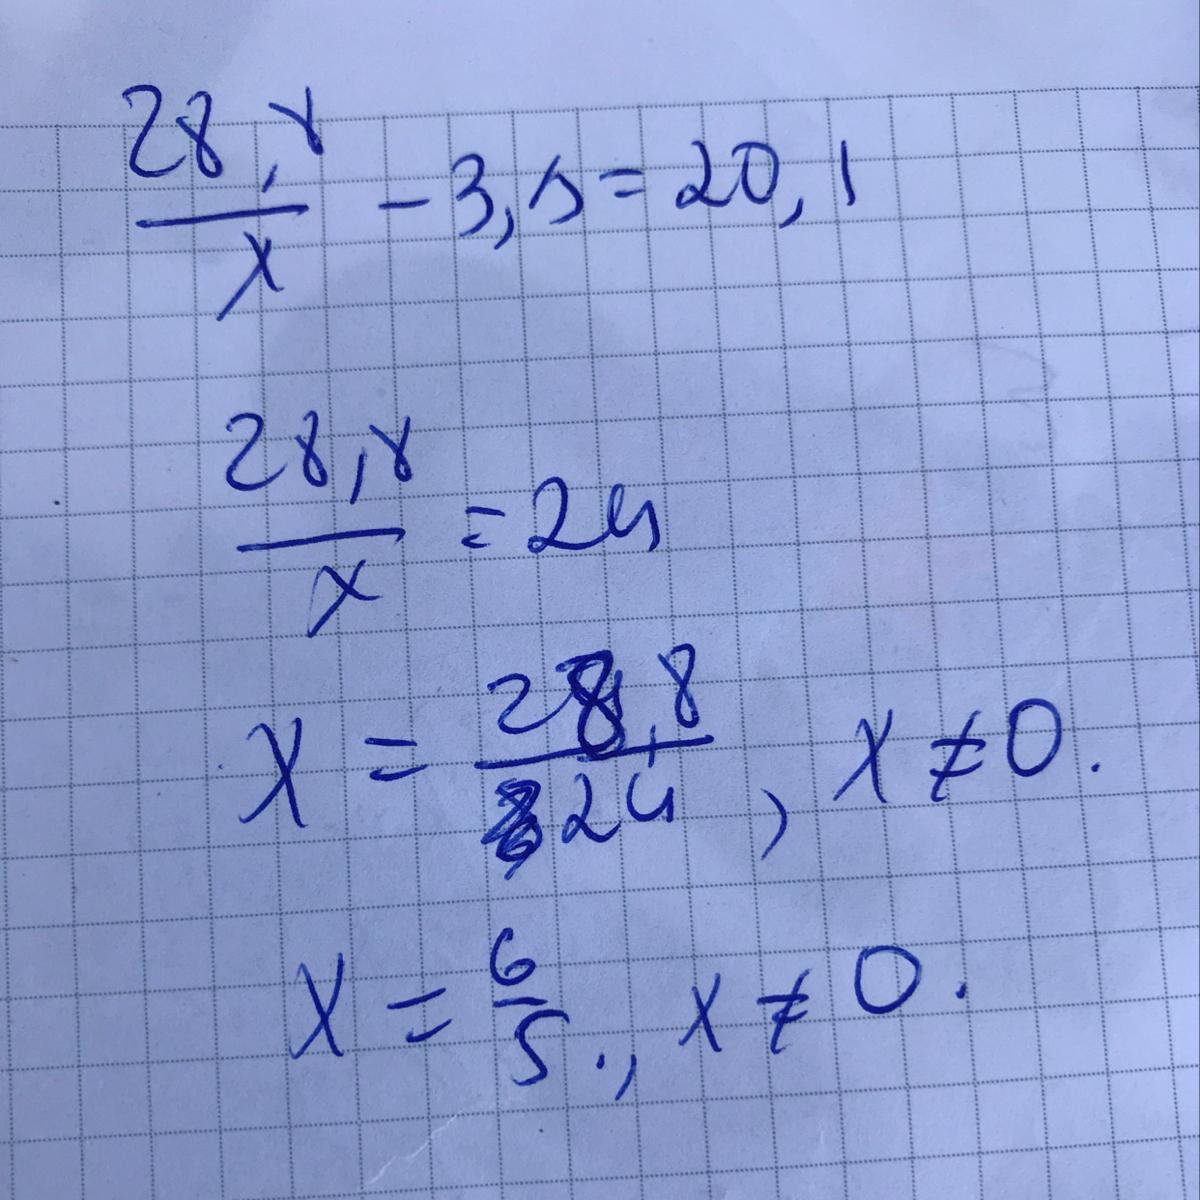 28,8/x - 3,9 = 20,1
28,8/x = 24
x = 28,8/24, x ≠ 0.
x = 6/5., x ≠ 0.